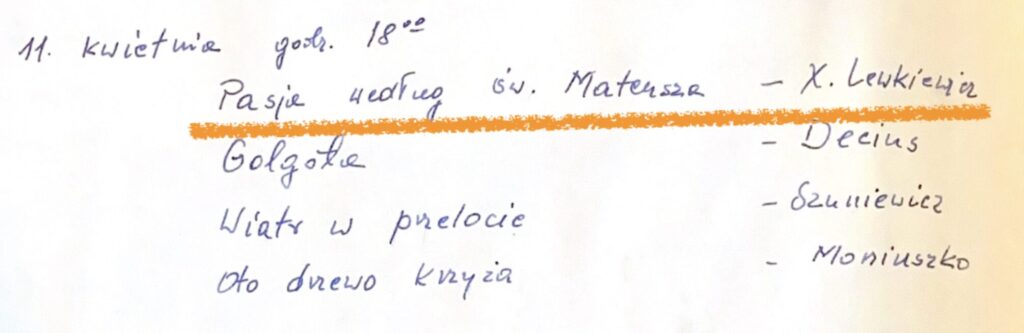 11. kwietnia godz. 18⁰⁰
Pasja według św. Mateusza - X. Lewkiewicz
Golgota - Decius
Wiatr w przelocie - Szuniewicz
Oto drzewo krzyża - Moniuszko